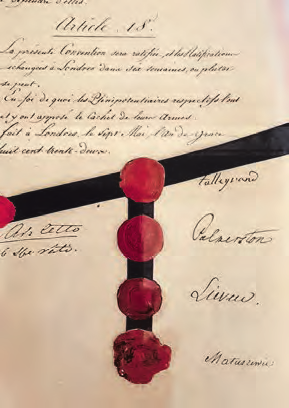 Article 18.
La présente Convention sera ratifiée, et les Ratifications
échangées à Londres dans six semaines, ou plutôt
se peut.
En foi de quoi les Plénipotentiaires respectifs l'ont
et y ont apposé le cachet de leurs Armes.
fait à Londres, le sept Mai l'An de grace
huit cent trente-deux.
Talleyrand
Palmerston
Lieven.
Matuszewic